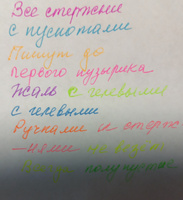 Все стержни
с пустотами
Пишут до
первого пузырика
Жаль с гелевыми
с гелевыми
Ручками и стерж
-нями
получше